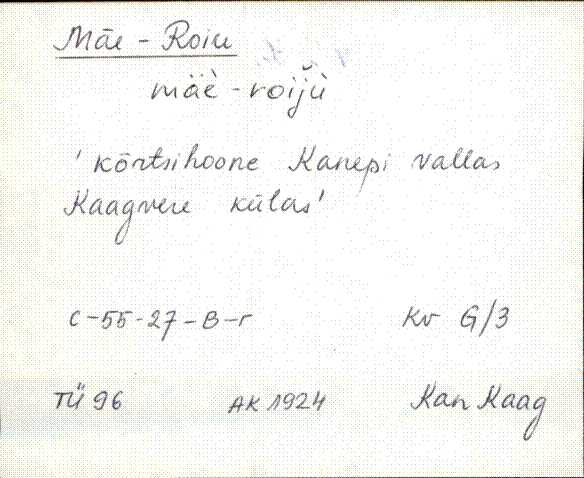 Mäe - Roiu
mäè - roij̆ù
' kõrtsihoone Kanepi vallas
Kaagvere külas'
C-55-27-B-г Kv G/3
TÜ 96 AK 1924 Kan Kaag